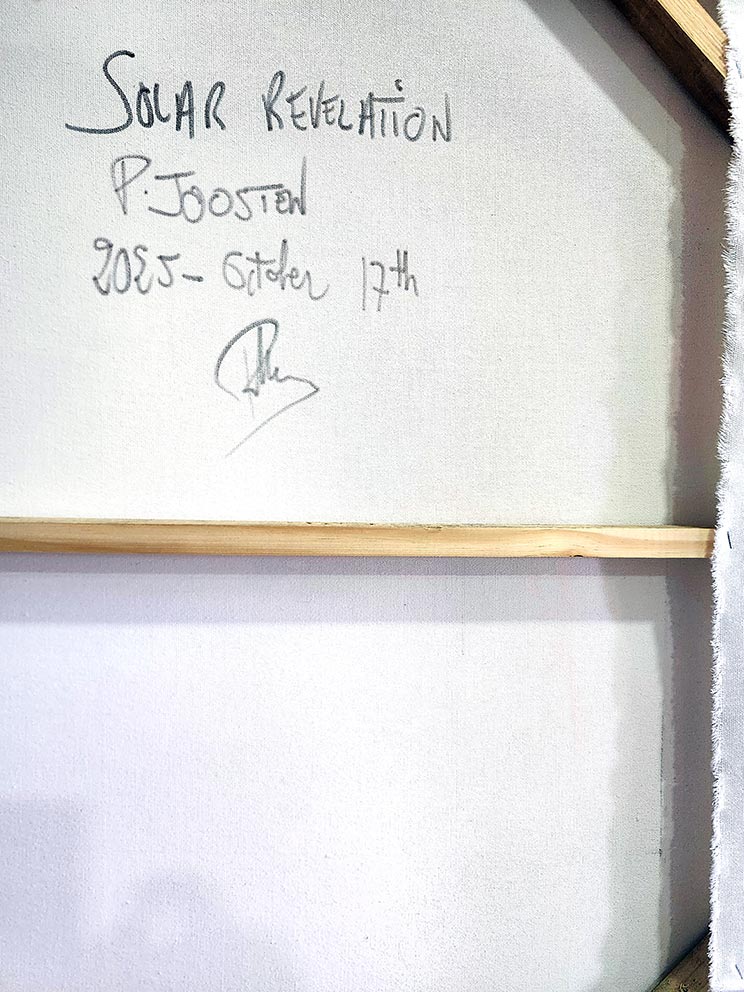 SOLAR REVELATION
P. JOOSTEN
2025 - October 17th